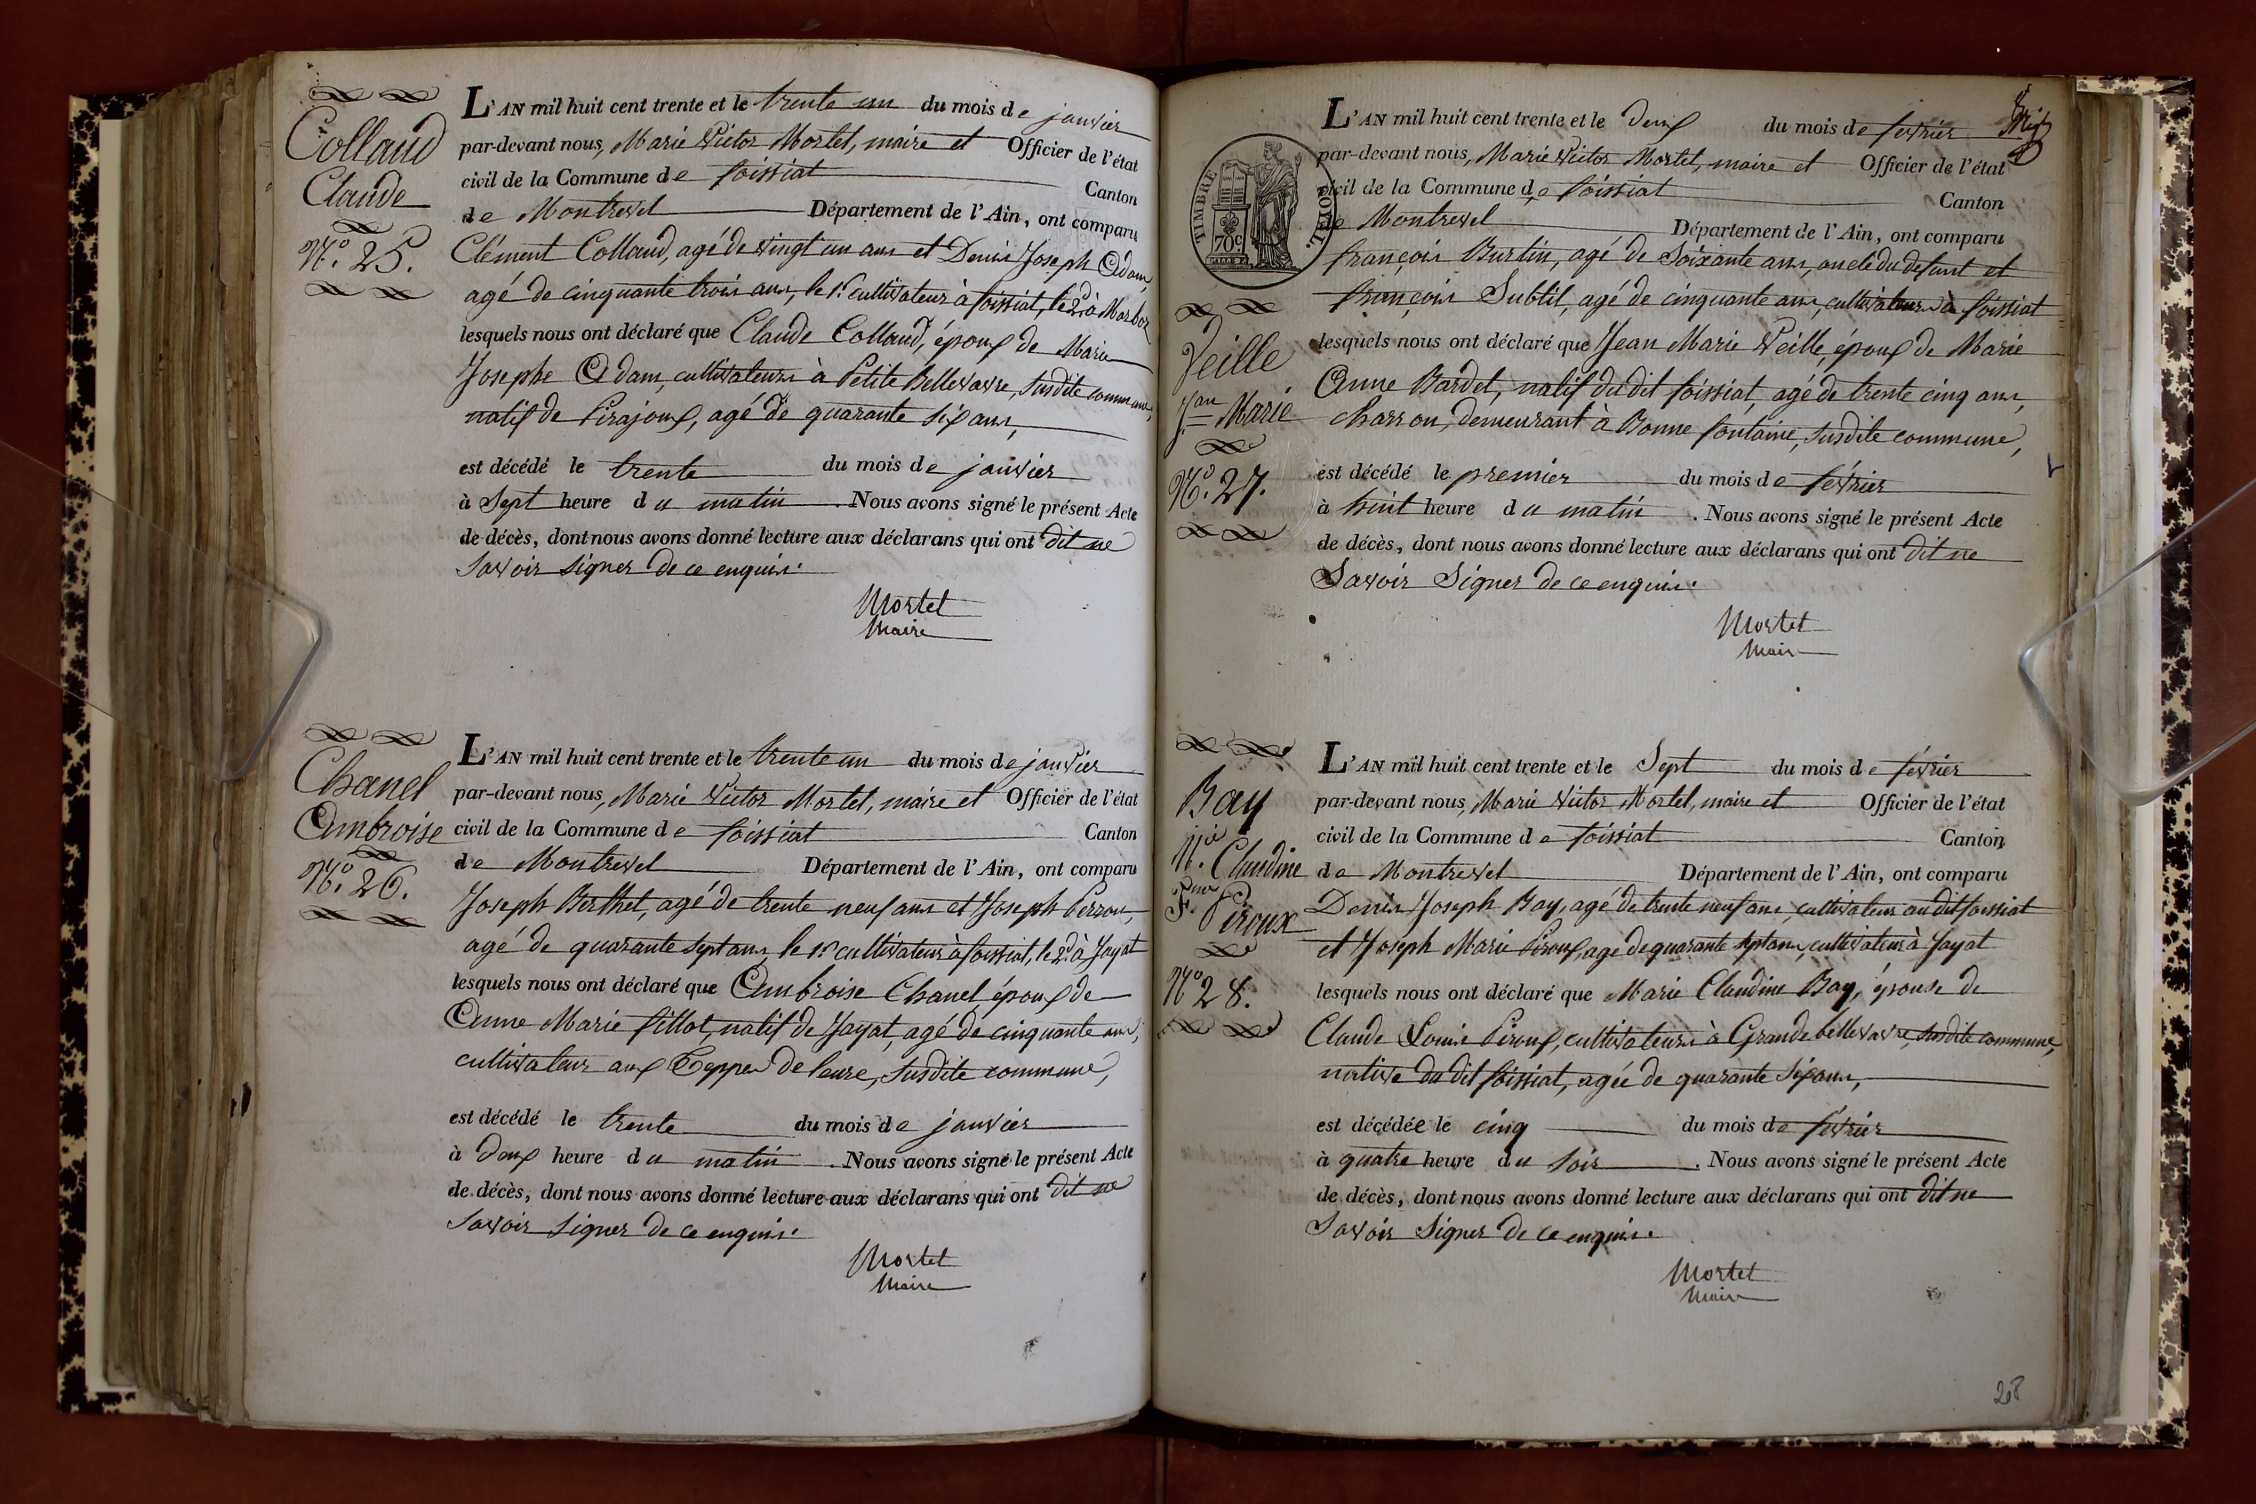 Collaud
Claude
N.o 25.
L'AN mil huit cent trente et le trente un du mois de janvier
par-devant nous, Marie Victor Mortel, maire et Officier de l'état
civil de la Commune de foissiat Canton
de Montrevel Département de l'Ain, ont comparu
Clément Collaud, agé de vingt un ans et Denis Joseph Adam,
agé de cinquante trois ans, le 1.r cultivateur à foissiat, le 2.d à Marboz
lesquels nous ont déclaré que Claude Collaud, époux de Marie
Josephe Adam, cultivateurs à Petite Bellevavre, susdite commune,
natif de Pirajoux, agé de quarante six ans,
est décédé le trente du mois de janvier
à Sept heure du matin. Nous avons signé le présent Acte
de décès, dont nous avons donné lecture aux déclarans qui ont dit ne
Savoir signer de ce enquis.
Mortel
Maire
Chanel
Ambroise
N.o 26.
L'AN mil huit cent trente et le trente un du mois de janvier
par-devant nous, Marie Victor Mortel, maire et Officier de l'état
civil de la Commune de foissiat Canton
de Montrevel Département de l'Ain, ont comparu
Joseph Berthet, agé de trente neuf ans et Joseph Perron,
agé de quarante sept ans, le 1.r cultivateur à foissiat, le 2.d à Jayat
lesquels nous ont déclaré que Ambroise Chanel époux de
Anne Marie fillot, natif de Jayat, agé de cinquante ans,
cultivateur aux Teppes de leure, susdite commune,
est décédé le trente du mois de janvier
à deux heure du matin. Nous avons signé le présent Acte
de décès, dont nous avons donné lecture aux déclarans qui ont dit ne
Savoir signer de ce enquis.
Mortel
Maire
TIMBRE ROYAL
70c
Veille
Jean Marie
N.o 27.
L'AN mil huit cent trente et le deux du mois de fevrier
par-devant nous, Marie Victor Mortel, maire et Officier de l'état
civil de la Commune de foissiat Canton
de Montrevel Département de l'Ain, ont comparu
françois Burlin, agé de Soixante ans, oncle du defunt et
françois Subtil, agé de cinquante ans, cultivateurs à foissiat
lesquels nous ont déclaré que Jean Marie Veille, époux de Marie
Anne Bardet, natif dudit foissiat, agé de trente cinq ans,
charron, demeurant à Bonne fontaine, susdite commune,
est décédé le premier du mois de février
à huit heure du matin. Nous avons signé le présent Acte
de décès, dont nous avons donné lecture aux déclarans qui ont dit ne
Savoir Signer de ce enquis.
Mortel
Maire
Bay
M.ie Claudine
F.me Piroux
N.o 28.
L'AN mil huit cent trente et le Sept du mois de février
par-devant nous, Marie Victor Mortel, maire et Officier de l'état
civil de la Commune de foissiat Canton
de Montrevel Département de l'Ain, ont comparu
Denis Joseph Bay, agé de trente neuf ans, cultivateur au dit foissiat
et Joseph Marie Piroux, agé de quarante sept ans, cultivateur à Jayat
lesquels nous ont déclaré que Marie Claudine Bay, épouse de
Claude Louis Piroux, cultivateurs à Grande bellevavre, susdite commune,
native du dit foissiat, agée de quarante six ans,
est décédée le cinq du mois de février
à quatre heure du soir. Nous avons signé le présent Acte
de décès, dont nous avons donné lecture aux déclarans qui ont dit ne
Savoir Signer de ce enquis.
Mortel
Maire
28